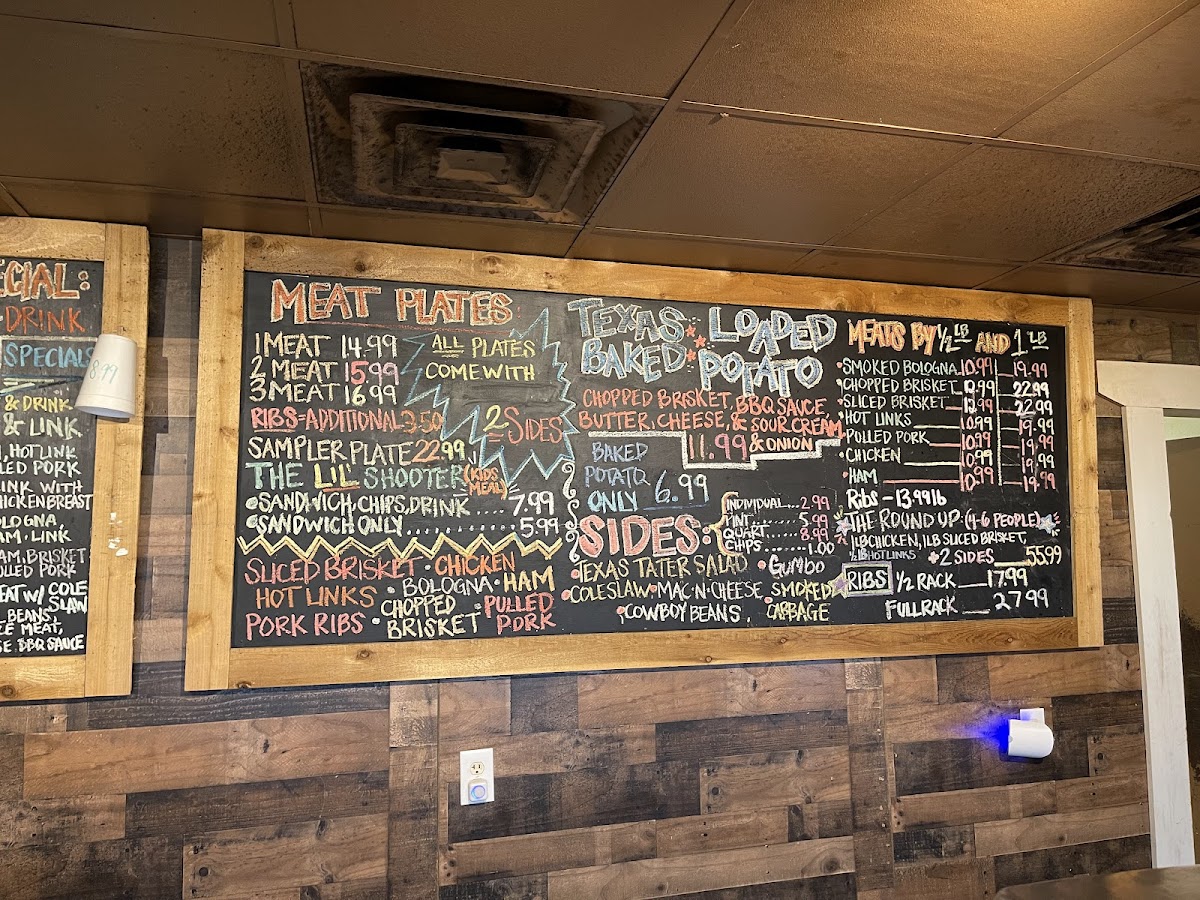 ECIAL:
DRINK
SPECIALS
8.99
& DRINK
& LINK
HOTLINK
LED PORK
INK WITH
CHICKEN BREAST
OLOGNA,
AM, LINK
AM, BRISKET
ULLED PORK
EAT W/ COLE SLAW
BEANS,
CE MEAT,
SE BBQ SAUCE
MEAT PLATES
1 MEAT 14.99
2 MEAT 15.99
3 MEAT 16.99
RIBS=ADDITIONAL 3.50
SAMPLER PLATE 22.99
THE LIL' SHOOTER (KIDS MEAL)
SANDWICH, CHIPS, DRINK.... 7.99
SANDWICH ONLY.......... 5.99
ALL PLATES
COME WITH
2 SIDES
SLICED BRISKET • CHICKEN
HOT LINKS • BOLOGNA • HAM
PORK RIBS • CHOPPED BRISKET • PULLED PORK
TEXAS LOADED
BAKED POTATO
CHOPPED BRISKET, BBQ SAUCE,
BUTTER, CHEESE, & SOUR CREAM
11.99 & ONION
BAKED
POTATO
ONLY 6.99
SIDES:
INDIVIDUAL... 2.99
PINT...... 5.99
QUART..... 8.99
CHIPS........ 1.00
• TEXAS TATER SALAD • GUMBO
• COLESLAW • MAC-N-CHEESE • SMOKED CABBAGE
• COWBOY BEANS
MEATS BY 1/2 LB AND 1 LB
• SMOKED BOLOGNA 10.99 19.99
• CHOPPED BRISKET 12.99 22.99
• SLICED BRISKET 12.99 22.99
• HOT LINKS 10.99 19.99
• PULLED PORK 10.99 19.99
• CHICKEN 10.99 19.99
• HAM 10.99 19.99
Ribs - 13.99 lb
THE ROUND UP: (4-6 PEOPLE)
1LB CHICKEN, 1LB SLICED BRISKET,
1/2 LB HOTLINKS + 2 SIDES 55.99
RIBS 1/2 RACK 17.99
FULL RACK 27.99